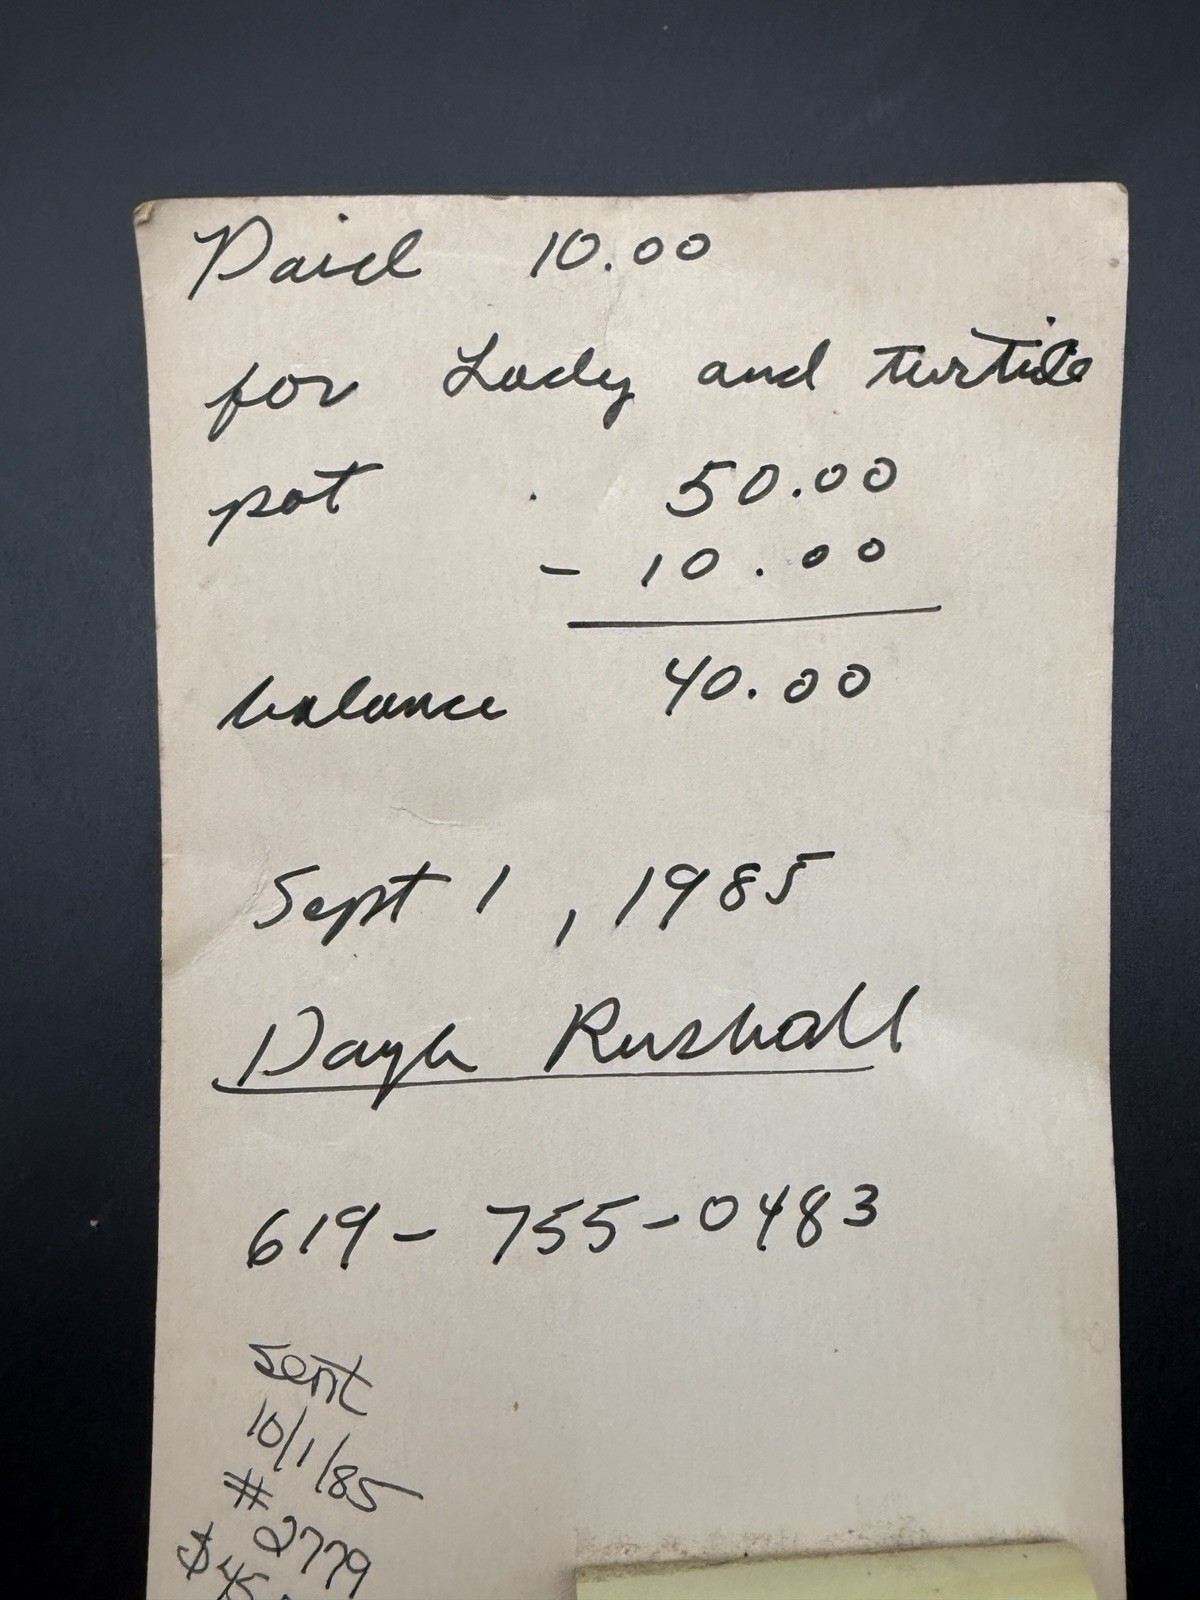 Paid 10.00
for Lady and turtile
pot 50.00
- 10.00
balance 40.00
Sept 1, 1985
Rushall
619-755-0483
sent
10/1/85
#
2779
$45